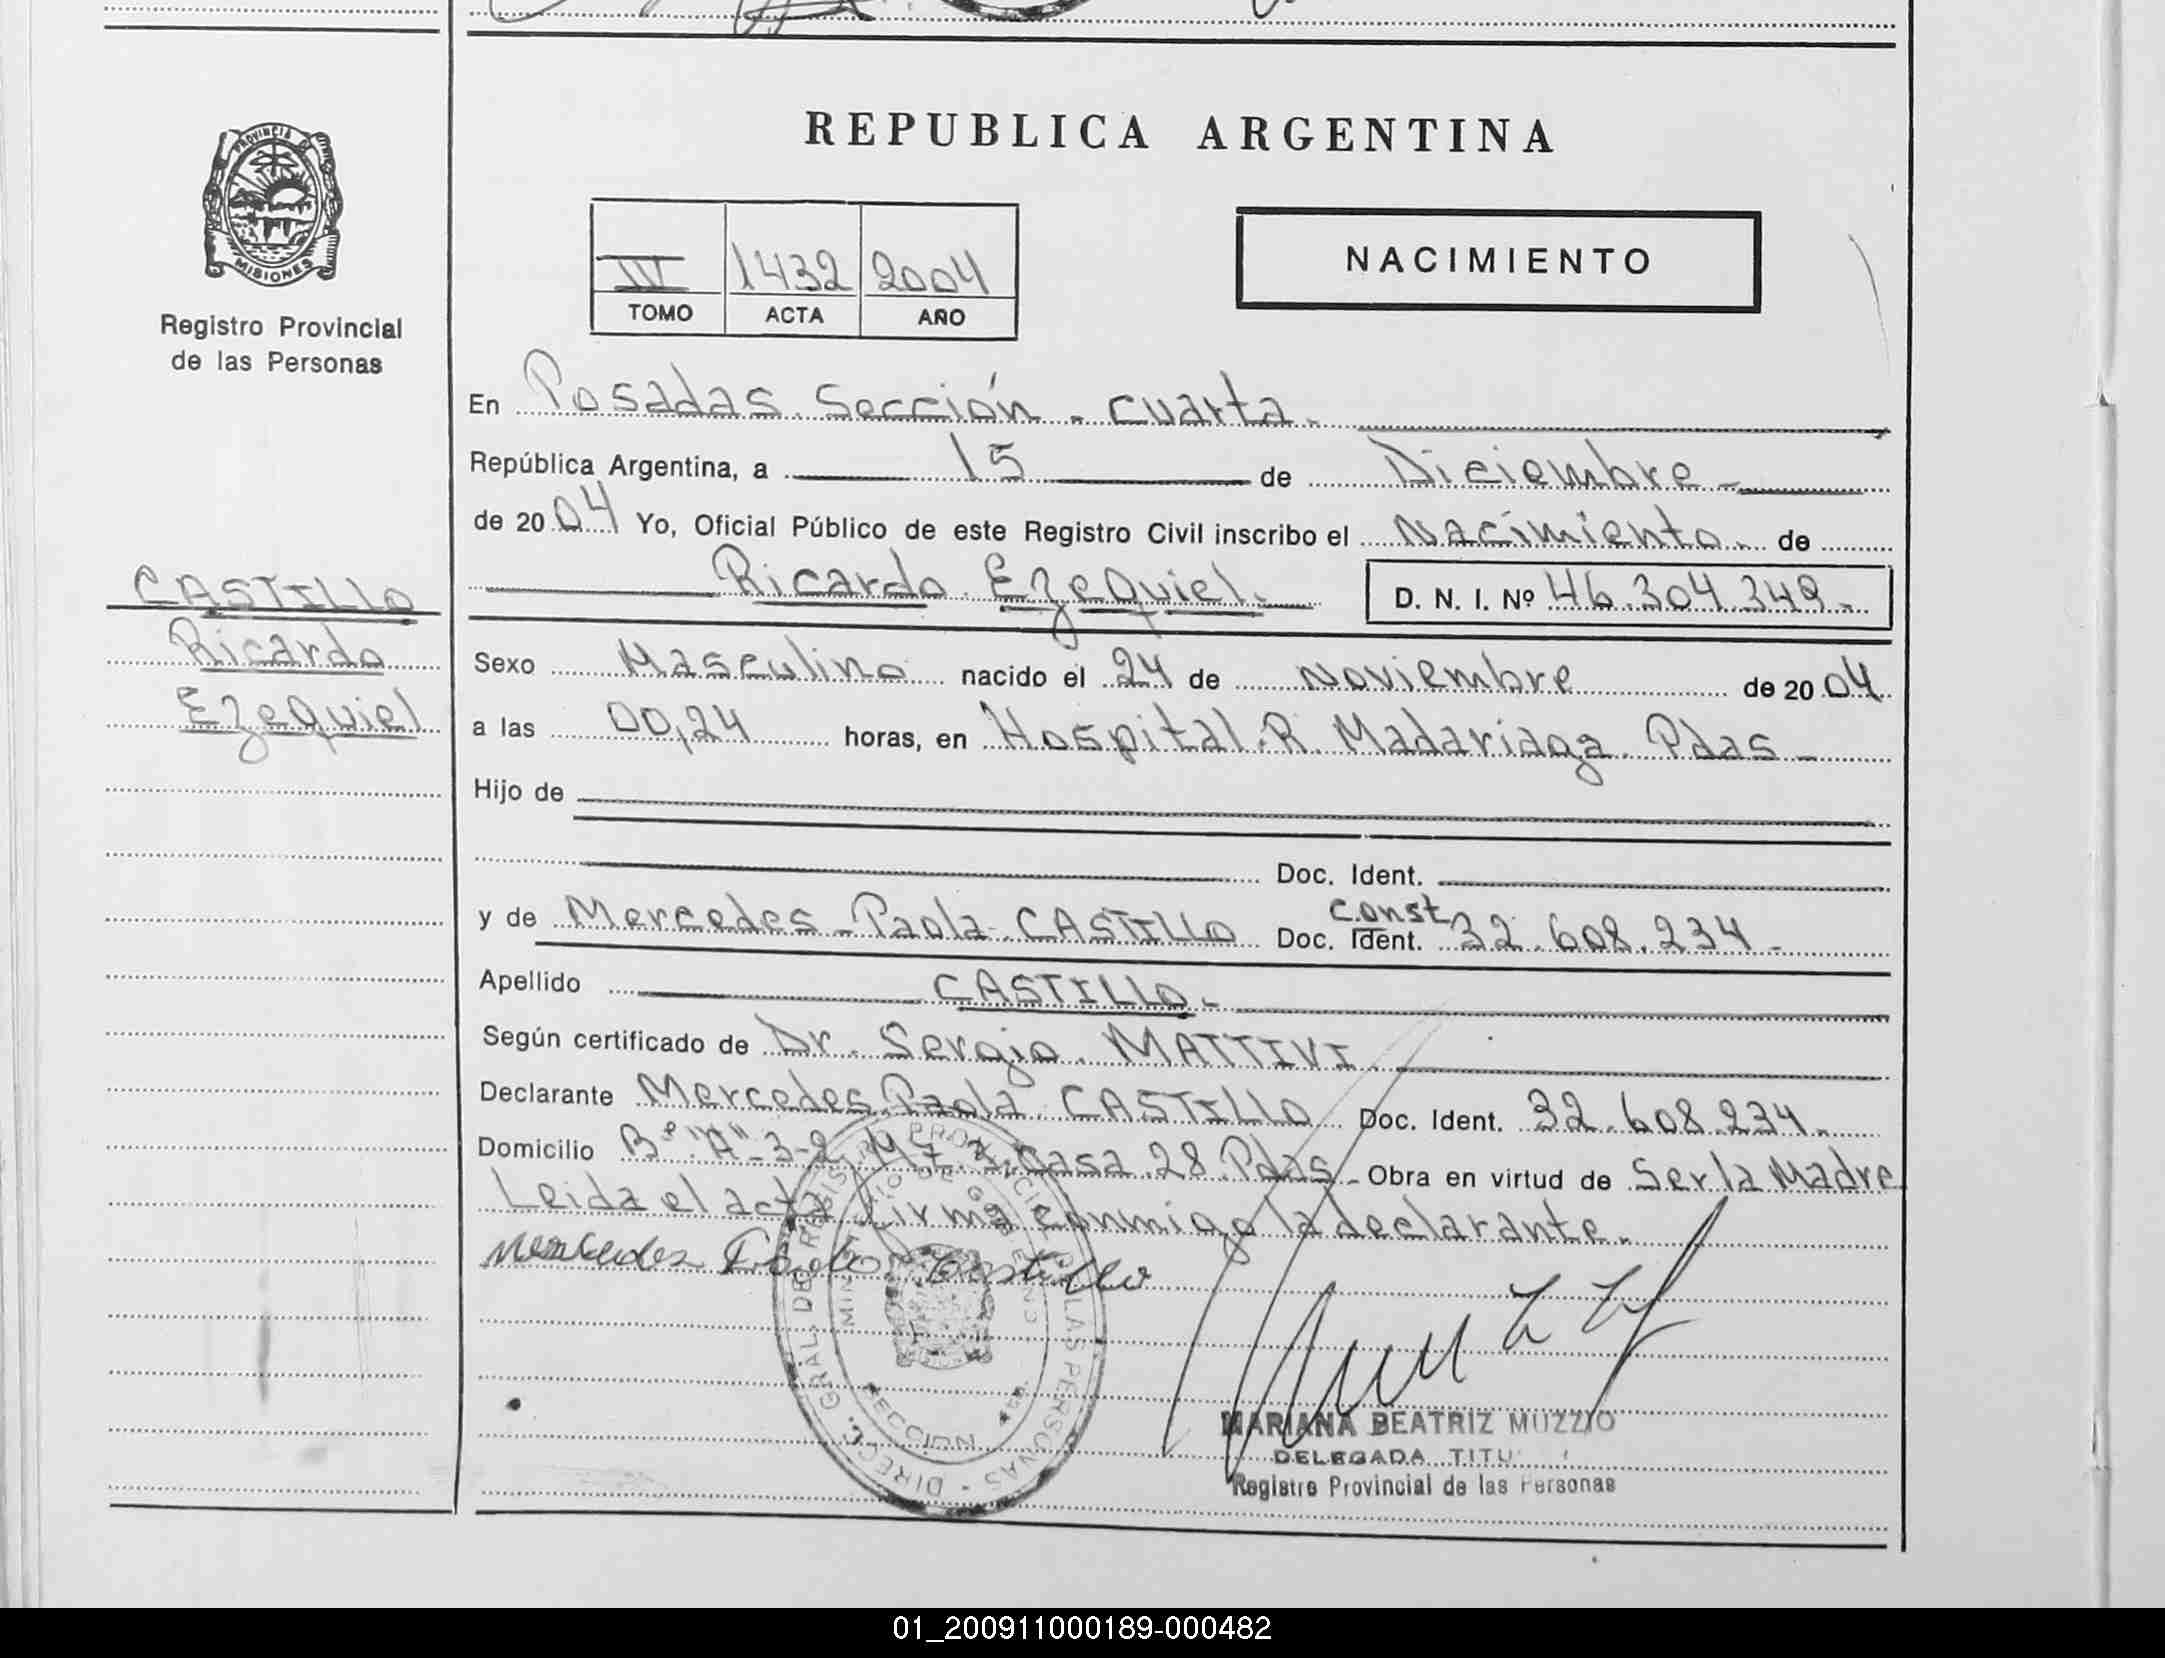 REPUBLICA ARGENTINA
PROVINCIA DE
MISIONES
Registro Provincial
de las Personas
IV 1432 2004
TOMO ACTA AÑO
NACIMIENTO
En Posadas. Sección - cuarta.
República Argentina, a 15 de Diciembre -
de 2004 Yo, Oficial Público de este Registro Civil inscribo el Nacimiento. de
Ricardo Ezequiel. D. N. I. Nº 46.304.349.-
CASTILLO
Ricardo
Ezequiel
Sexo Masculino nacido el 24 de Noviembre de 2004
a las 00,24 horas, en Hospital. R. Madariaga. Pdas -
Hijo de
Doc. Ident.
y de Mercedes - Paola - CASTILLO Doc. Ident. const 32.608.234 -
Apellido CASTILLO.-
Según certificado de Dr. Sergio. MATTIVI.
Declarante Mercedes Paola CASTILLO Doc. Ident. 32.608.234.-
Domicilio Bº "A"-3-2 casa 28. Pdas - Obra en virtud de Ser la Madre
Leida el acta firma conmigo la declarante.-
Mercedes Paola Castillo
DIRECC. GRAL. DEL REGISTRO PROVINCIAL DE LAS PERSONAS
MINISTERIO DE GOBIERNO
SECCION 4ta.
MARIANA BEATRIZ MUZZIO
DELEGADA TITU
Registro Provincial de las Personas
01_200911000189-000482